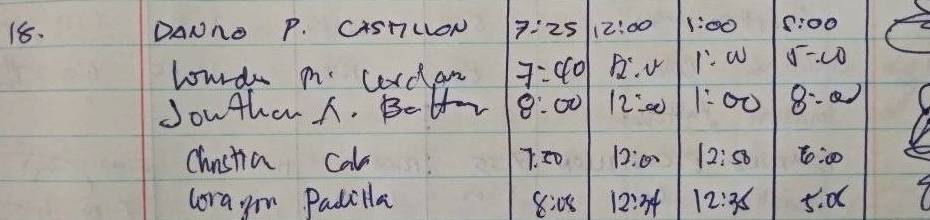 18. DANRO P. CASTILLON 7:25 12:00 1:00 5:00
Lourdes M. 7:40 12:00 1:00 5:00
Jonathan A. 8:00 12:00 1:00 8:00
Christia Cala 7:50 12:00 12:50 6:00
Corazon Padilla 8:08 12:34 12:35 5:05